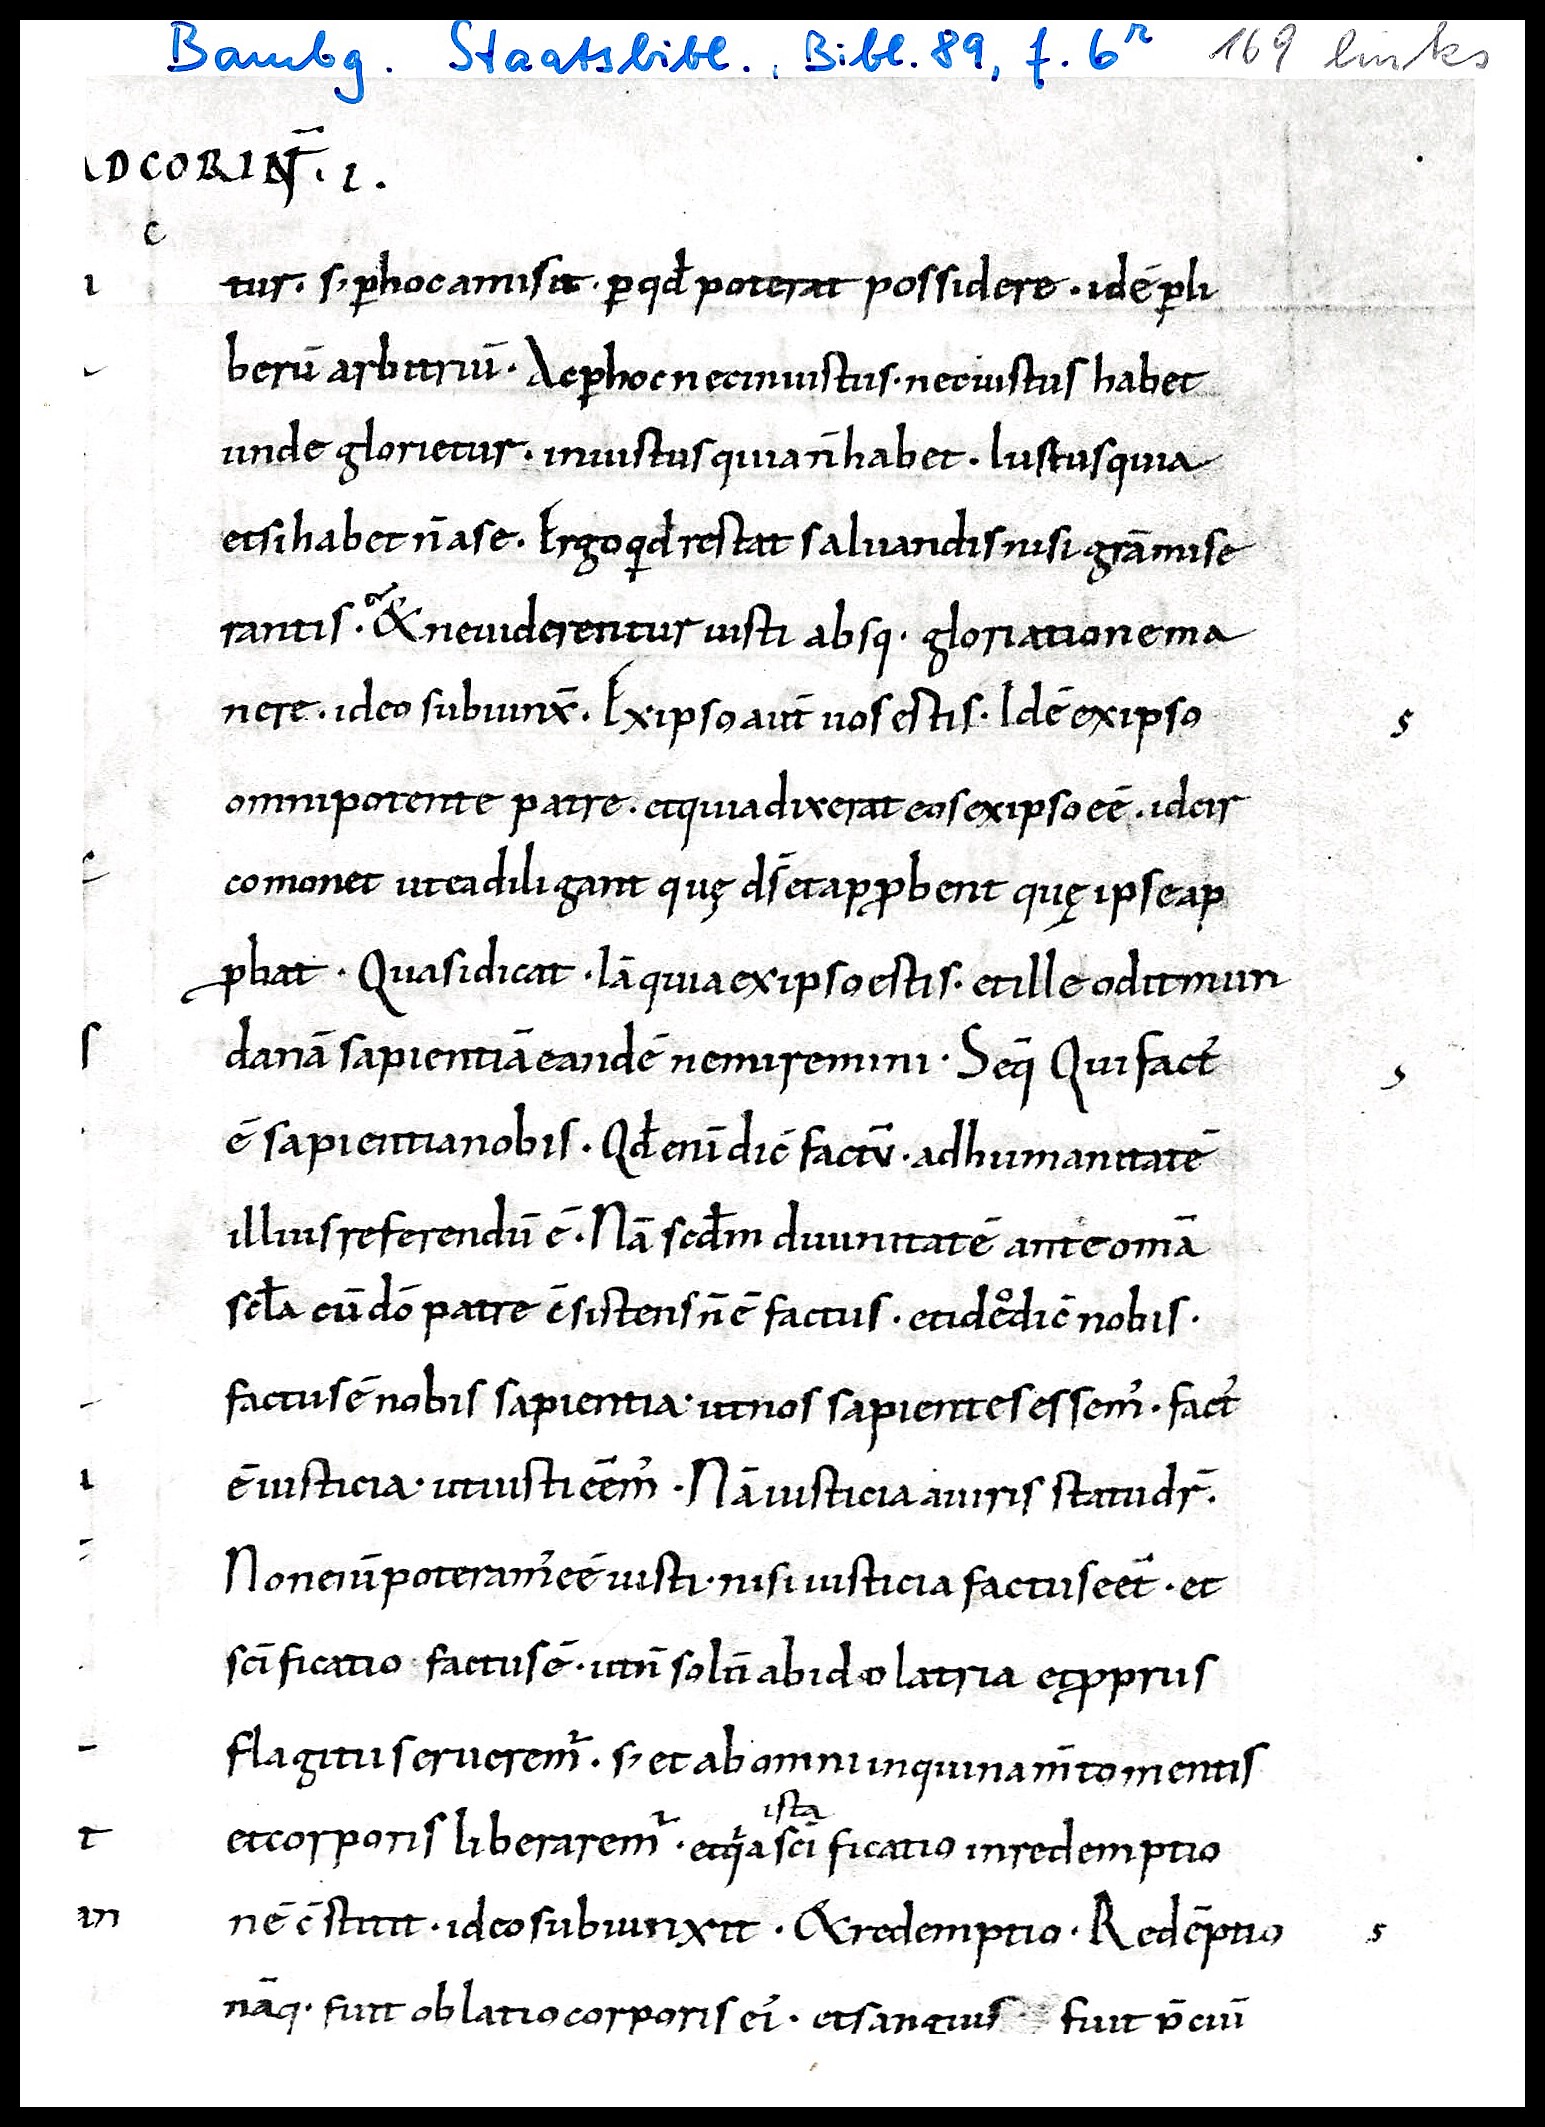 Bambg. Staatsbibl., Bibl. 89, f. 6ʳ 169 links
ADCORINT̄. I.
c
tur. s; ꝑhocamisit. ꝑqđ poterat possidere. idē ꝑli
berū arbitriū. Acꝑhoc neciniustus. neciustus habet
unde glorietur. iniustus quian̄habet. Iustusquia
etsihabet n̄ase. Ergoqđ restat saluandis nisi grāmise
rantis. & neuiderentur iusti absq. gloriationema
nere. ideo subiunx̄. Exipso aut̄ uos estis. Idē exipso
omnipotente patre. etquiadixerat eosexipso eē. idcir
comonet uteadiligant quę dс̄ etapꝓbent quę ipseap
ꝓbat. Quasidicat. Iā quiaexipsoestis. etille oditmun
danā sapientiā eandē nemiremini. Seq̄ Quifact᾽
ē sapientianobis. Qđ enī dic̄ factū. adhumanitatē
illiusreferendū ē. Nā scđm diuinitatē anteomā
scła cū dō patre c̄sistens n̄ ē factus. etideodic̄ nobis.
factus ē nobis sapientia. utnos sapientes essem᾽. fact᾽
ē iusticia. utiusti eēm᾽. Nā iusticia aiuris statu dr̄.
Non enī poteram᾽ eē iusti. nisi iusticia factus eēt. et
sc̄ificatio factus ē. utn̄ solū abidolatria etꝓpriis
flagitiis erueremr̄. s; et abomni inquinam̄to mentis
etcorporis liberaremr̄. etqa ista sc̄ificatio inredemptio
nē c̄stitit. ideosubiunxit. &redemptio. Redēptio
nāq. fuit oblatiocorporis ei᾽. etsanguis fuit p̄ciū
s
s
s